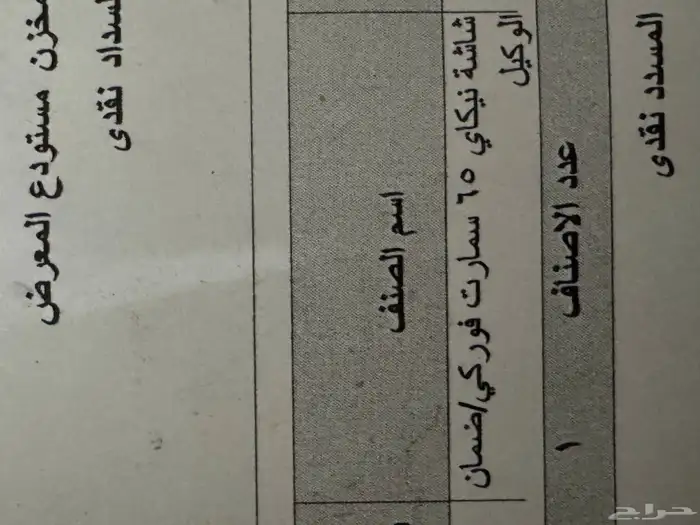 مخزن مستودع المعرض
السداد نقدى
اسم الصنف
شاشة نيكاي ٦٥ سمارت فوركي/ضمان
الوكيل
عدد الاصناف ١
المسدد نقدى
حراج